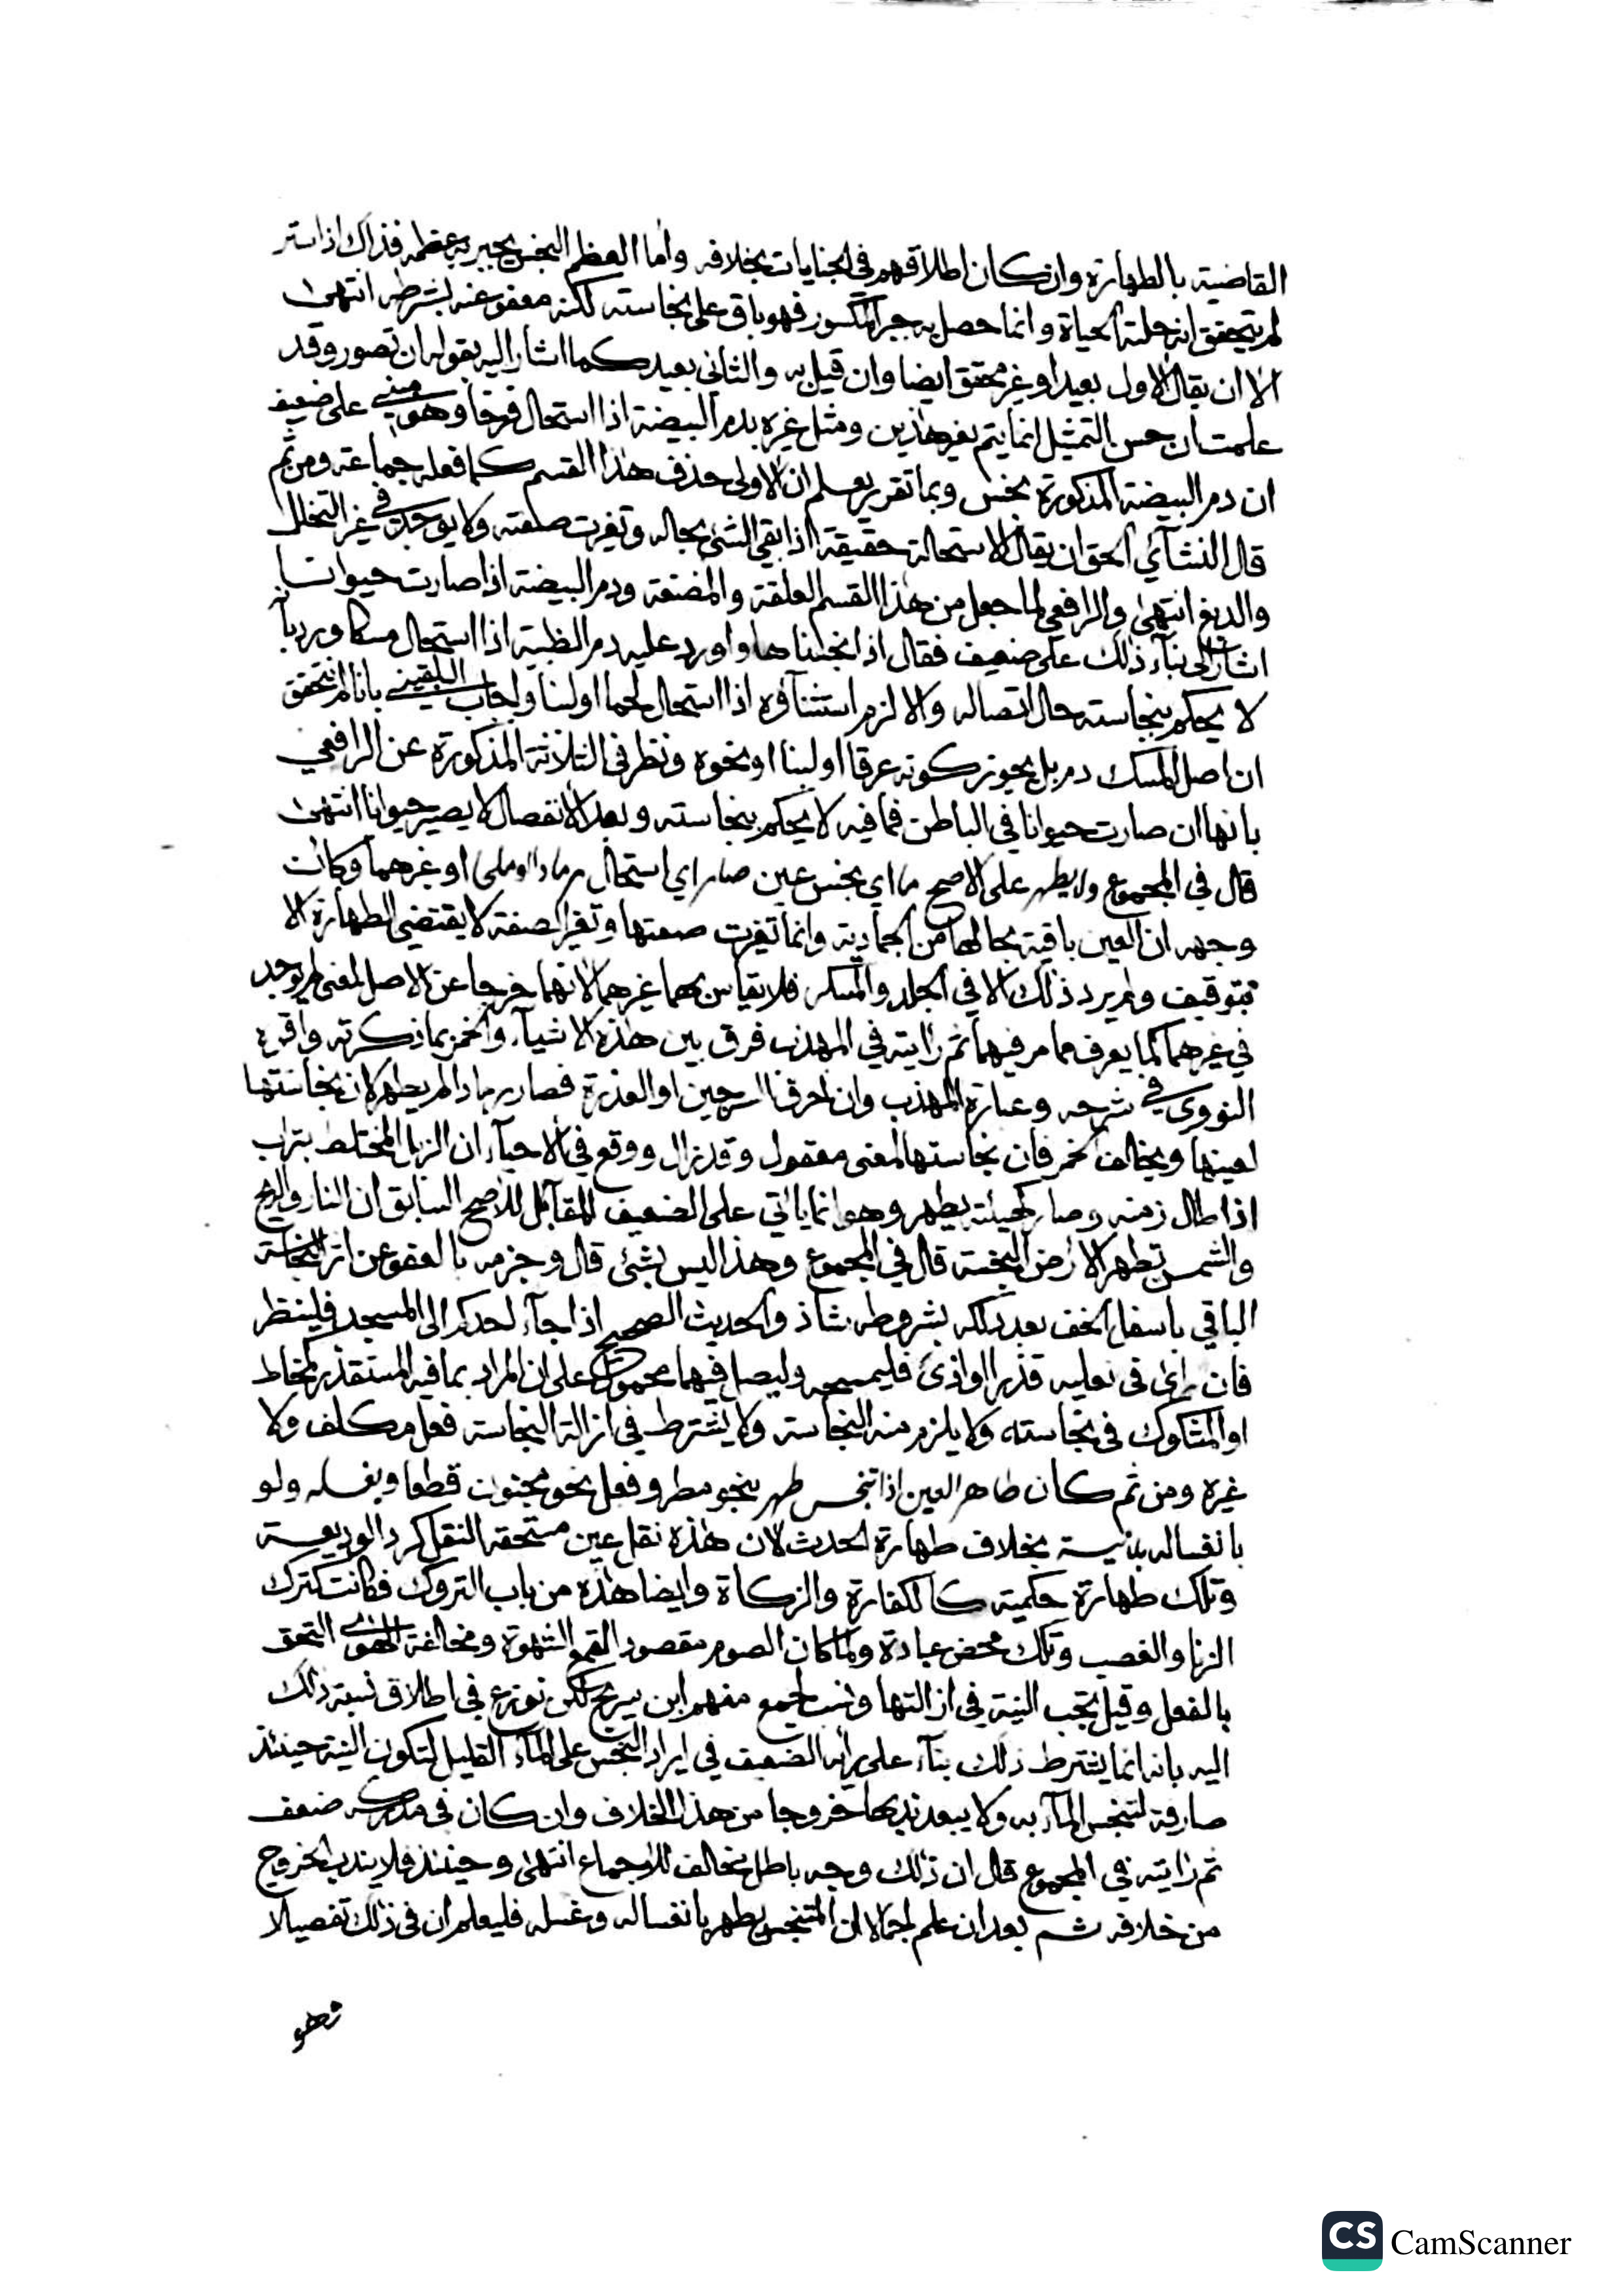 القاضية بالطهارة وان كان اطلاقهم في الجنايات بخلافه واما العظم النجس يجبر به عظمه فذاك اذا ستر
لم يتحقق انه حلته الحياة وانما حصل به جبر المكسور فهو باق على نجاسته لكنه معفو عنه بشرطه انتهى
الا ان يقال الاول بعيد او غير محقق ايضا وان قيل به والثاني بعيد كما اشار اليه بقوله ان تصور وقد
علمت ان حسن التمثيل انما يتم بغير هاذين ومثل غيره بدم البيضة اذا استحال فرخا وهو مبني على ضعيف
ان دم البيضة المذكورة نجس وبما تقرر يعلم ان الاولى حذف هذا القسم كما فعله جماعة ومن ثم
قال النشآئي الحق ان يقال الاستحالة حقيقة اذا بقي الشئ بحاله وتغيرت صفته ولا يوجد في غير التخلل
والدبغ انتهى والرافعي لما جعل من هذا القسم العلقة والمضغة ودم البيضة اذا صارت حيوانا
اشار الى بنآء ذلك على ضعيف فقال اذا نجسناها واورد عليه دم الظبية اذا استحال مسكا ورد بانه
لا يحكم بنجاسته حال اتصاله والا لزم استثنآؤه اذا استحال لحما او لبنا واجاب البلقيني بانا لم نتحقق
ان اصل المسك دم بل يجوز كونه عرقا او لبنا او نحوه ونظر في الثلاثة المذكورة عن الرافعي
بانها ان صارت حيوانا في الباطن فما فيه لا يحكم بنجاسته وبعد الانفصال لا يصير حيوانا انتهى
قال في المجموع ولا يطهر على الاصح ما اي نجس عين صار اي استحال رمادا او ملحا او غيرهما وكانت
وجهه ان العين باقية بحالها من الجمادية وانما تغيرت صفتها وتغير الصفة لا يقتضي الطهارة الا
بتوقيف ولم يرد ذلك الا في الجلد والمسكر فلا يقاس بهما غيرهما لانهما خرجا عن الاصل لمعنى لم يوجد
في غيرهما كما يعرف مما مر فيهما ثم رايته في المهذب فرق بين هذه الاشيآء والخمر بما ذكرته واقره
النووي في شرحه وعبارة المهذب وان احرق السرجين او العذرة فصار رمادا لم يطهر لان نجاستها
لعينها ويخالف الخمر فان نجاستها لمعنى معقول وقد زال ووقع في الاحيآء ان الزبل المختلط بتراب
اذا طال زمنه وصار لهيئته يطهر وهو انما ياتي على الضعيف المقابل للاصح السابق ان النار والريح
والشمس تطهر الارض النجسة قال في المجموع وهذا ليس بشئ قال وجزمه بالعفو عن اثر النجاسة
الباقي باسفل الخف بعد دلكه بشروطه شاذ والحديث الصحيح اذا جآء احدكم الى المسجد فلينظر
فان راى في نعليه قذرا او اذى فليمسحه وليصل فيهما محمول على ان المراد بما فيه المستقذر كمخاط
او المشكوك في نجاسته ولا يلزم منه النجاسة ولا يشترط في ازالة النجاسة فعل مكلف ولا
غيره ومن ثم كان طاهر العين اذا تنجس طهر بنحو مطر وفعل نحو مجنون قطعا وبغسله ولو
بانغساله بلا نية بخلاف طهارة الحدث لان هذه نقل عين مستحقة النقل كرد الوديعة
وتلك طهارة حكمية كالكفارة والزكاة وايضا هذه من باب التروك فكانت كترك
الزنا والغصب وتلك محض عبادة ولما كان الصوم مقصود القمع الشهوة ومخالفة الهوى التحق
بالفعل وقيل تجب النية في ازالتها ونسب لجمع منهم ابن سريج لكن نوزع في اطلاق نسبة ذلك
اليه بانه انما يشترط ذلك بنآء على رأيه الضعيف في ايراد النجس على المآء القليل لتكون النية حينئذ
صارفة لتنجس المآء به ولا يبعد ندبها خروجا من هذا الخلاف وان كان في مدركه ضعف
ثم رايته في المجموع قال ان ذلك وجه باطل مخالف للاجماع انتهى وحينئذ فلا يندب الخروج
من خلافه ثم بعد ان علم اجمالا ان المتنجس يطهر بانغساله وغسله فليعلم ان في ذلك تفصيلا
CS CamScanner